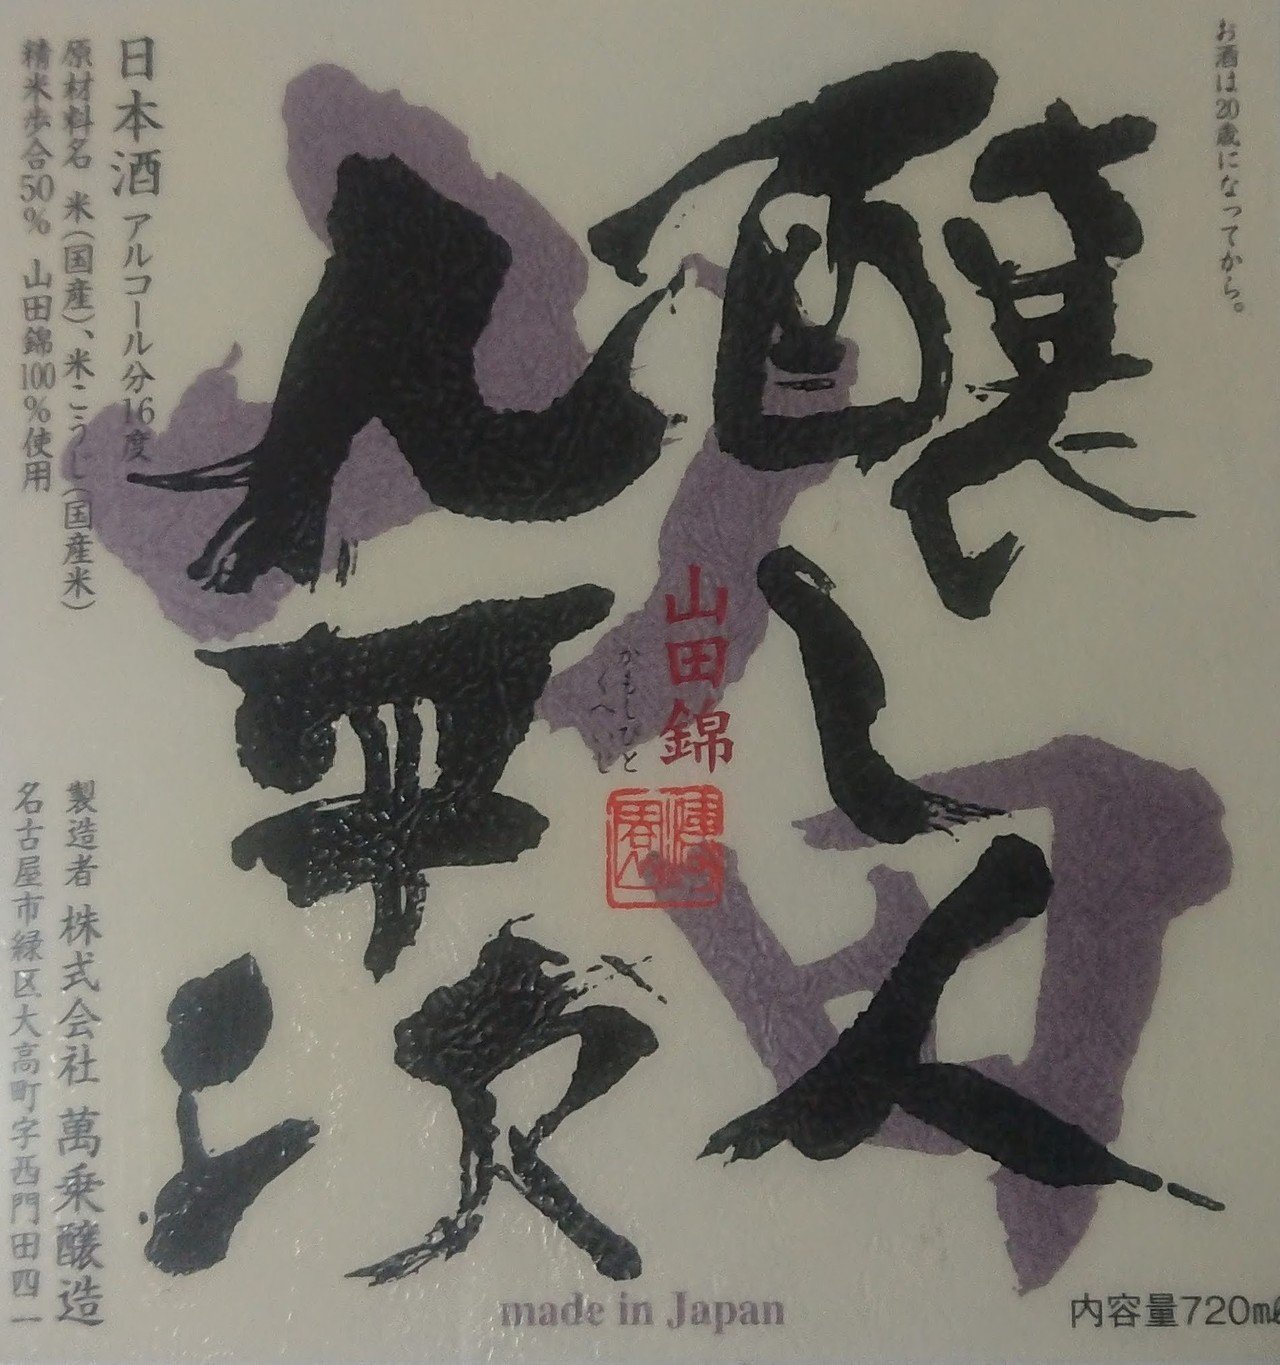 お酒は20歳になってから。
醸し人
九平次
山田錦
かもしびと
くへいじ
日本酒 アルコール分16度
原材料名 米(国産)、米こうじ(国産米)
精米歩合50% 山田錦100%使用
製造者 株式会社 萬乗醸造
名古屋市緑区大高町字西門田四一
made in Japan
内容量720mℓ